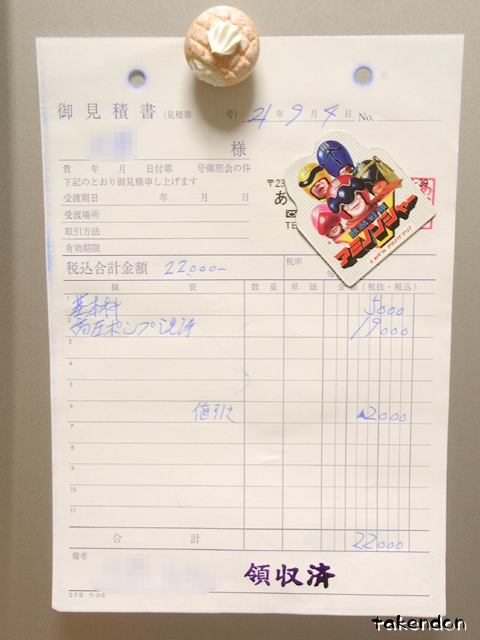 御見積書 (見積第 号) 21年 9月 4日 No.
様
貴 年 月 日付第 号御照会の件
下記のとおり御見積申し上げます
受渡期日 年 月 日
受渡場所
取引方法
有効期限
〒23
あ
TE
アミノンジャー
Let's アミノンジャー!
税込合計金額 22000-
税率
摘 要 数量 単価 金額(税抜・税込)
1 基本料 5000
2 高圧ポンプ洗浄 19000
3
4
5
6 値引き ▲2000
7
8
9
10
11
合計 22000
備考
領収済
コクヨ ウ-316
takendon